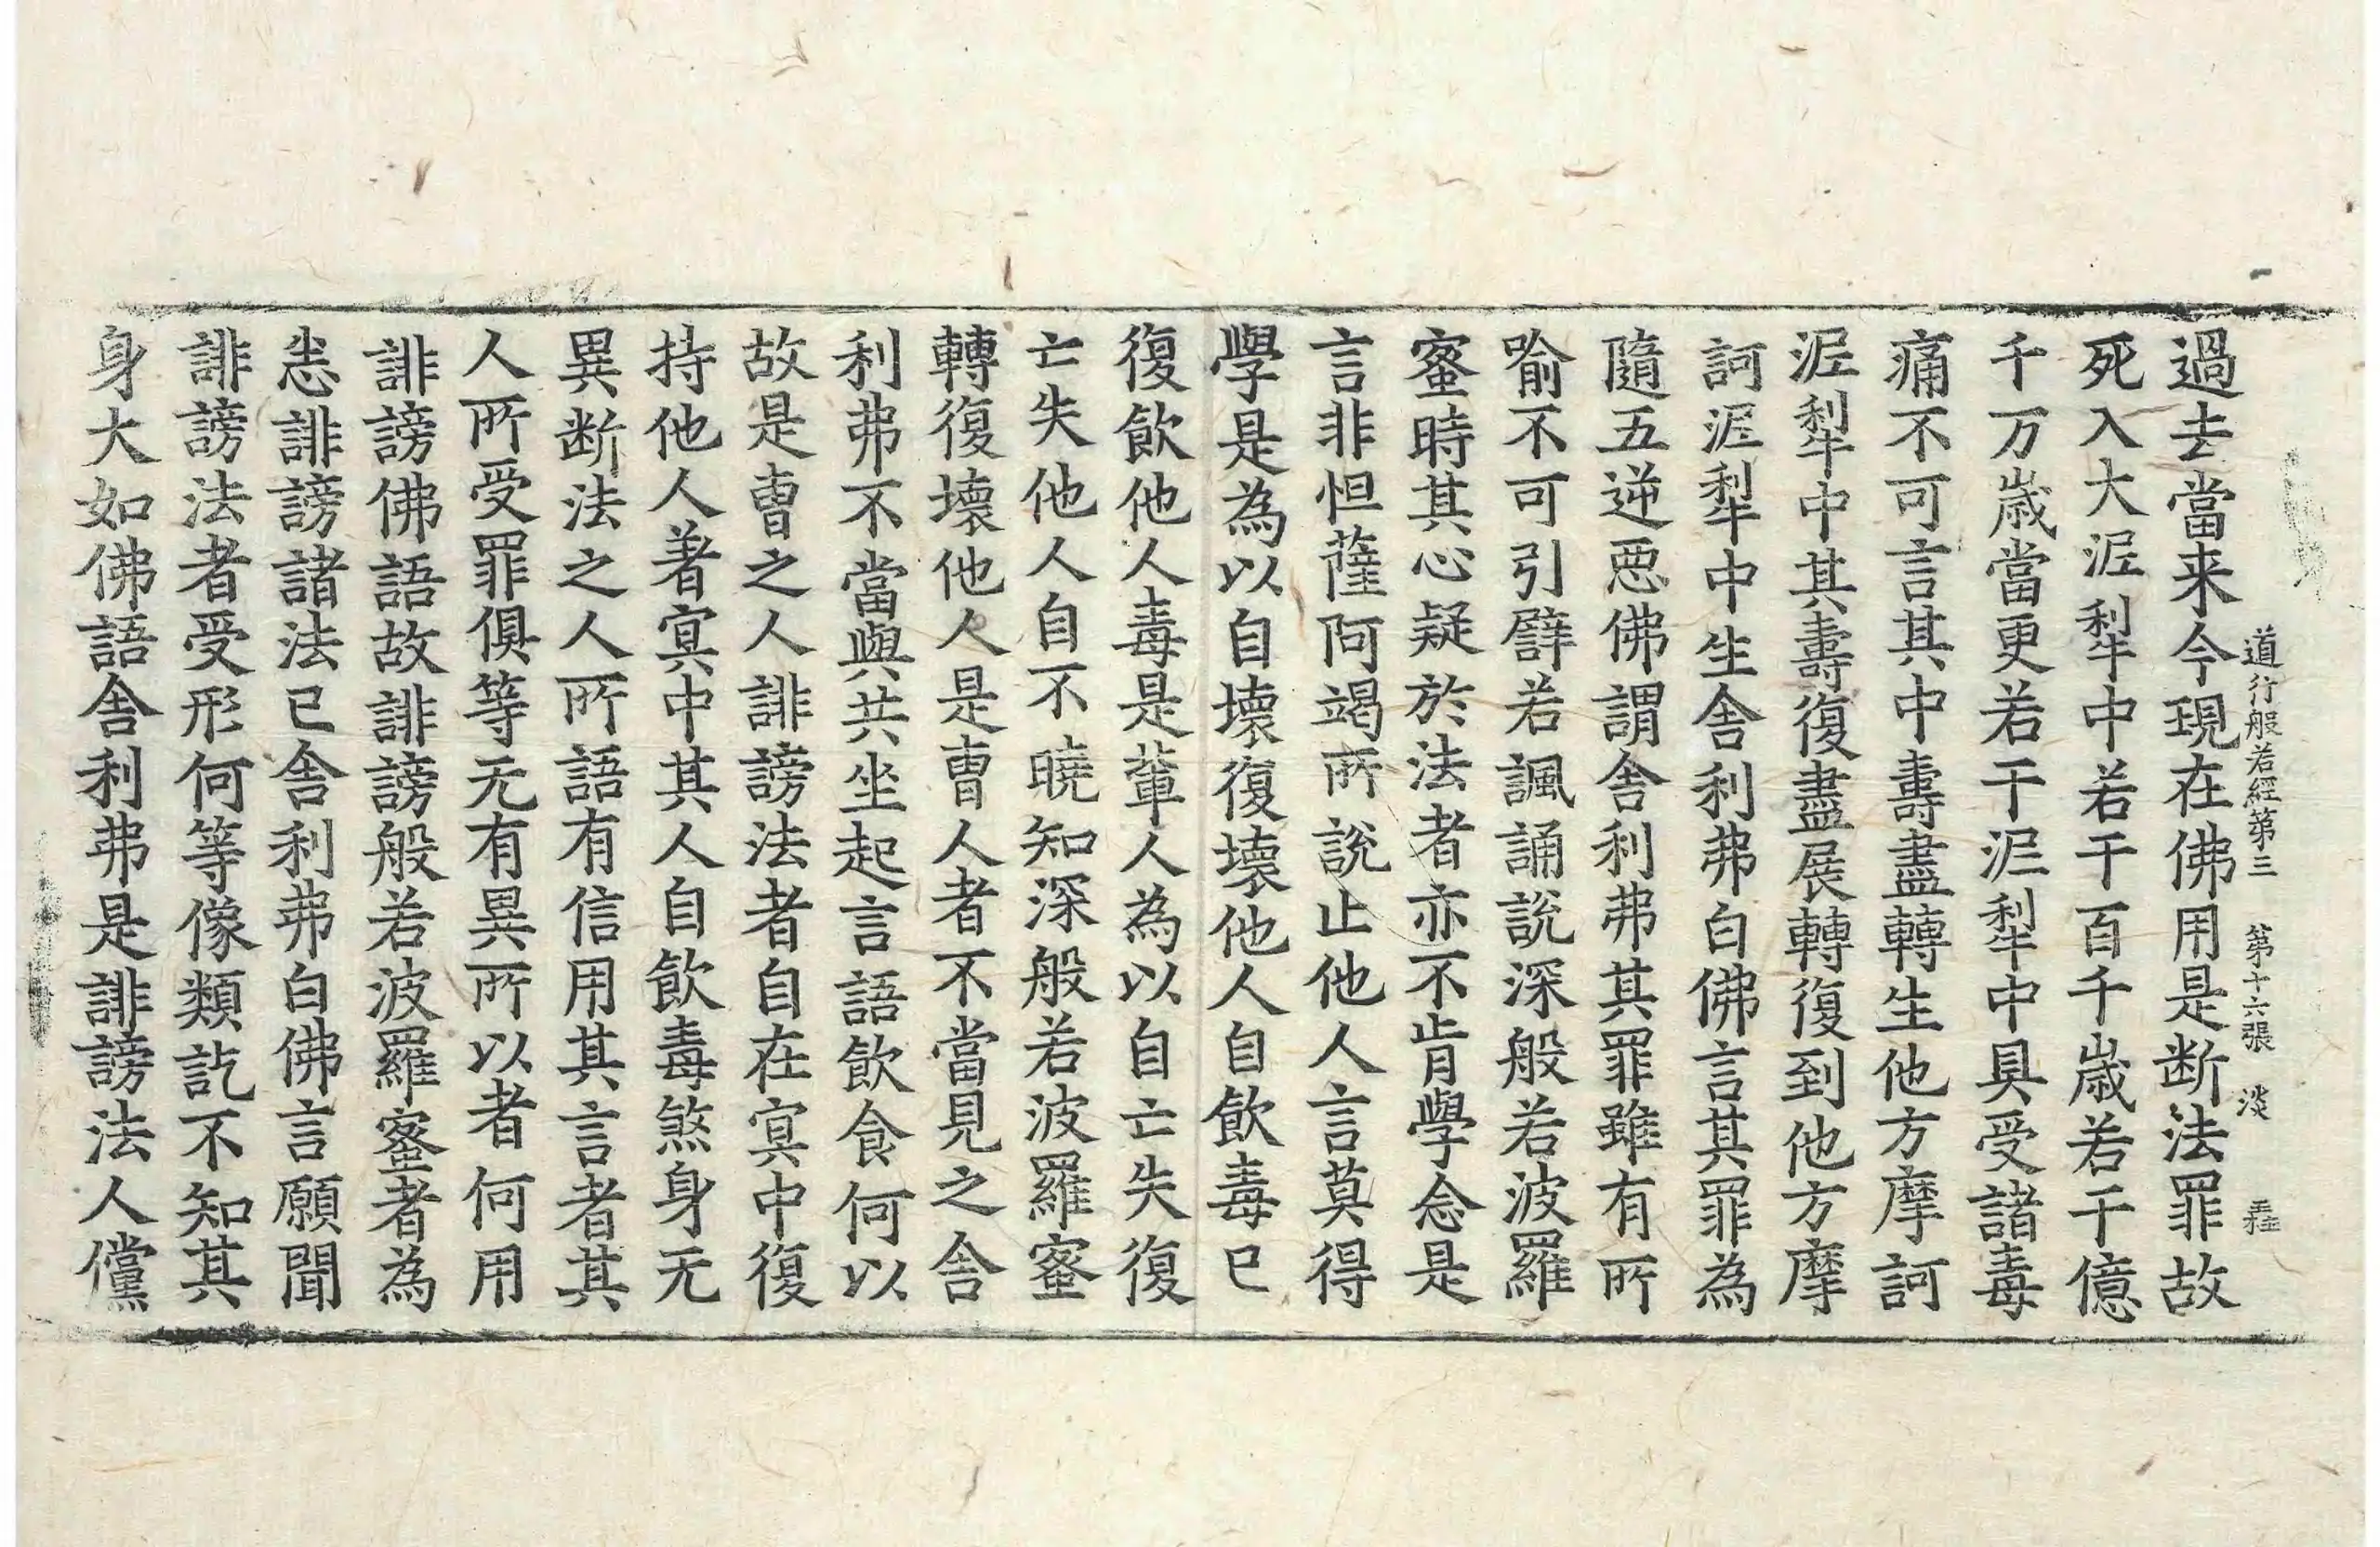 道行般若經第三 第十六張 淡
過去當来今現在佛用是断法罪故
死入大泥犁中若干百千歳若干億
千万歳當更若干泥犁中具受諸毒
痛不可言其中壽盡轉生他方摩訶
泥犁中其壽復盡展轉復到他方摩
訶泥犁中生舎利弗白佛言其罪為
隨五逆悪佛謂舎利弗其罪雖有所
喻不可引譬若諷誦說深般若波羅
蜜時其心疑於法者亦不肯學念是
言非怛薩阿竭所說止他人言莫得
學是為以自壞復壞他人自飲毒已
復飲他人毒是輩人為以自亡失復
亡失他人自不曉知深般若波羅蜜
轉復壞他人是曺人者不當見之舎
利弗不當與共坐起言語飲食何以
故是曺之人誹謗法者自在冥中復
持他人著冥中其人自飲毒煞身无
異断法之人所語有信用其言者其
人所受罪俱等无有異所以者何用
誹謗佛語故誹謗般若波羅蜜者為
悉誹謗諸法已舎利弗白佛言願聞
誹謗法者受形何等像類訖不知其
身大如佛語舎利弗是誹謗法人儻